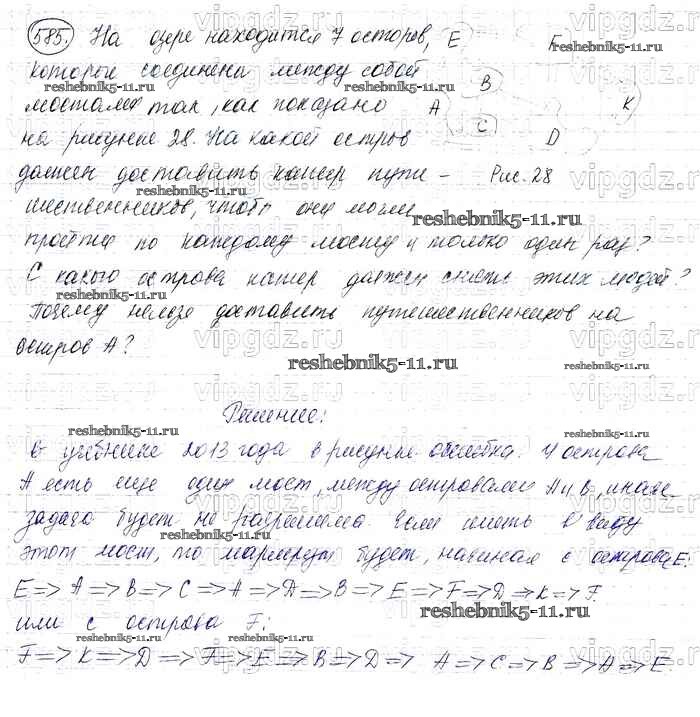 585. На озере находится 7 островов, E F
которые соединены между собой B
мостами так, как показано A K
на рисунке 28. На какой остров C D
должен доставить катер путе- Рис. 28
шественников, чтобы они могли
пройти по каждому мосту и только один раз?
С какого острова катер должен снять этих людей?
Почему нельзя доставить путешественников на
остров А?
Решение:
В учебнике 2013 года в рисунке ошибка. У острова
А есть еще один мост, между островами А и В, иначе
задача будет не разрешима. Если иметь в виду
этот мост, то маршрут будет, начиная с острова E:
E=>A=>B=>C=>A=>D=>B=>E=>F=>D=>K=>F.
или с острова F:
F=>K=>D=>F=>E=>B=>D=> A=>C=>B=>A=>E
reshebnik5-11.ru
vipgdz.ru